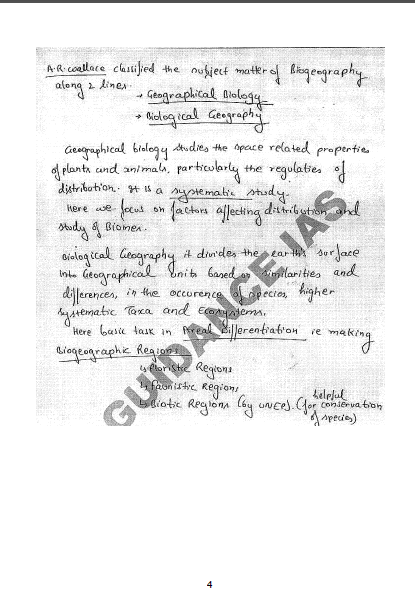 A.R. wallace classified the subject matter of Biogeography
along 2 lines.
→ Geographical Biology
→ Biological Geography
Geographical biology studies the space related properties
of plants and animals, particularly the regulaties of
distribution. It is a systematic study.
Here we focus on factors affecting distribution and
study of Biomes.
Biological Geography it divides the earth's surface
into Geographical Units based on similarities and
differences, in the occurence of species, higher
systematic Taxa and Ecosystems.
Here basic task in Areal Differentiation ie making
Biogeographic Regions
↳ Floristic Regions
↳ Faunistic Regions
↳ Biotic Regions (by UNEP). (helpful for conservation
of species)
GUIDANCE IAS
4